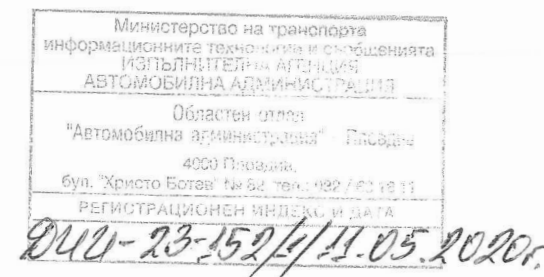 Министерство на транспорта
информационните технологии и съобщенията
ИЗПЪЛНИТЕЛНА АГЕНЦИЯ
АВТОМОБИЛНА АДМИНИСТРАЦИЯ
Областен отдел
"Автомобилна администрация" - Пловдив
4000 Пловдив,
бул. "Христо Ботев" № 82, тел.: 032 /
РЕГИСТРАЦИОНЕН ИНДЕКС И ДАТА
11.05.2020г.